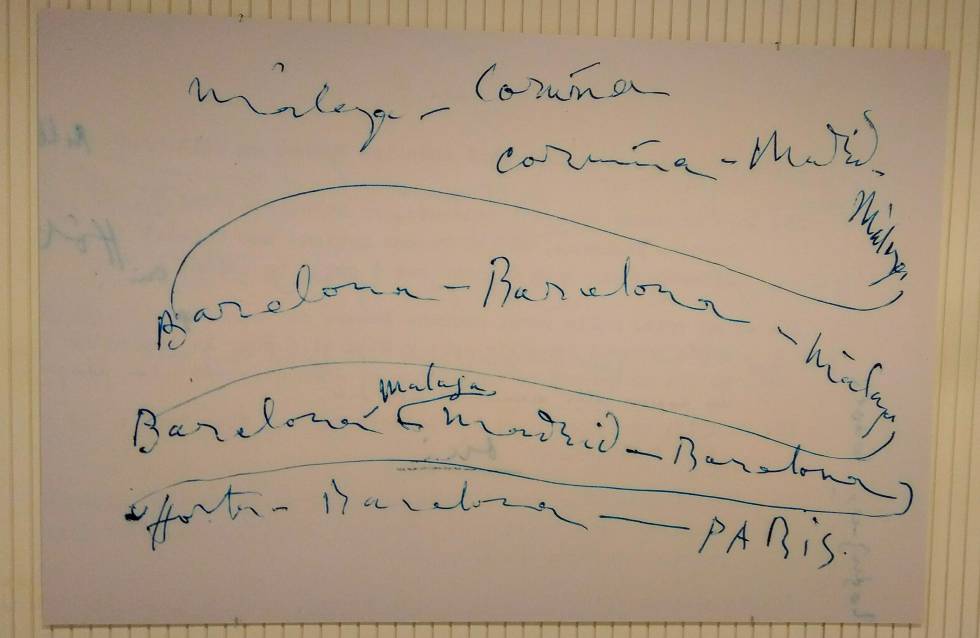 Málaga - Coruña
Coruña - Madrid -
Málaga
Barcelona - Barcelona - Málaga
Malaga
Barcelona Madrid - Barcelona
Horta - Barcelona — PARIS.